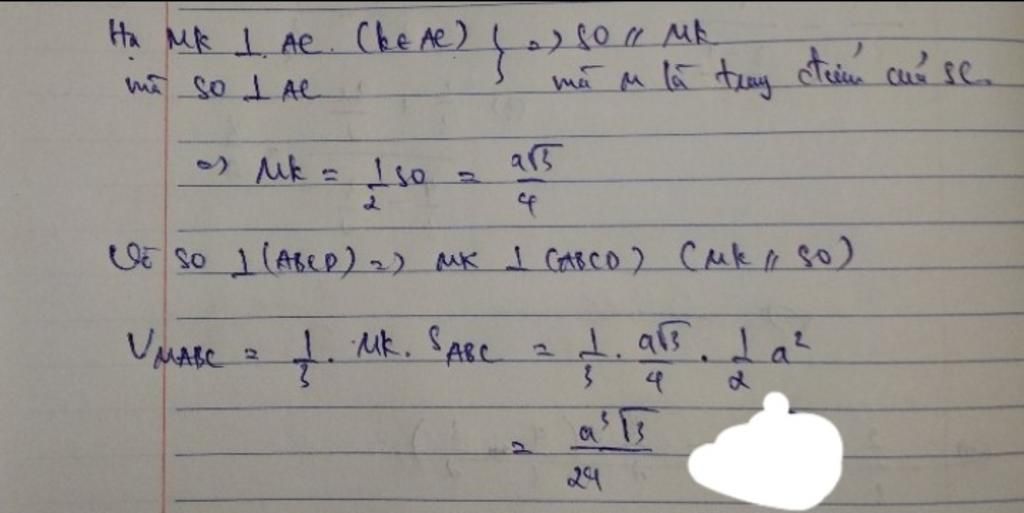 Hạ MK ⊥ AC. (K∈AC) } => SO // MK
mà SO ⊥ AC mà M là trung điểm của SC.
=> MK = 1/2 SO = a√3/4
Vì SO ⊥ (ABCD) => MK ⊥ (ABCD) (MK // SO)
V_MABC = 1/3 . MK . S_ABC = 1/3 . a√3/4 . 1/2 a²
= a³√3/24